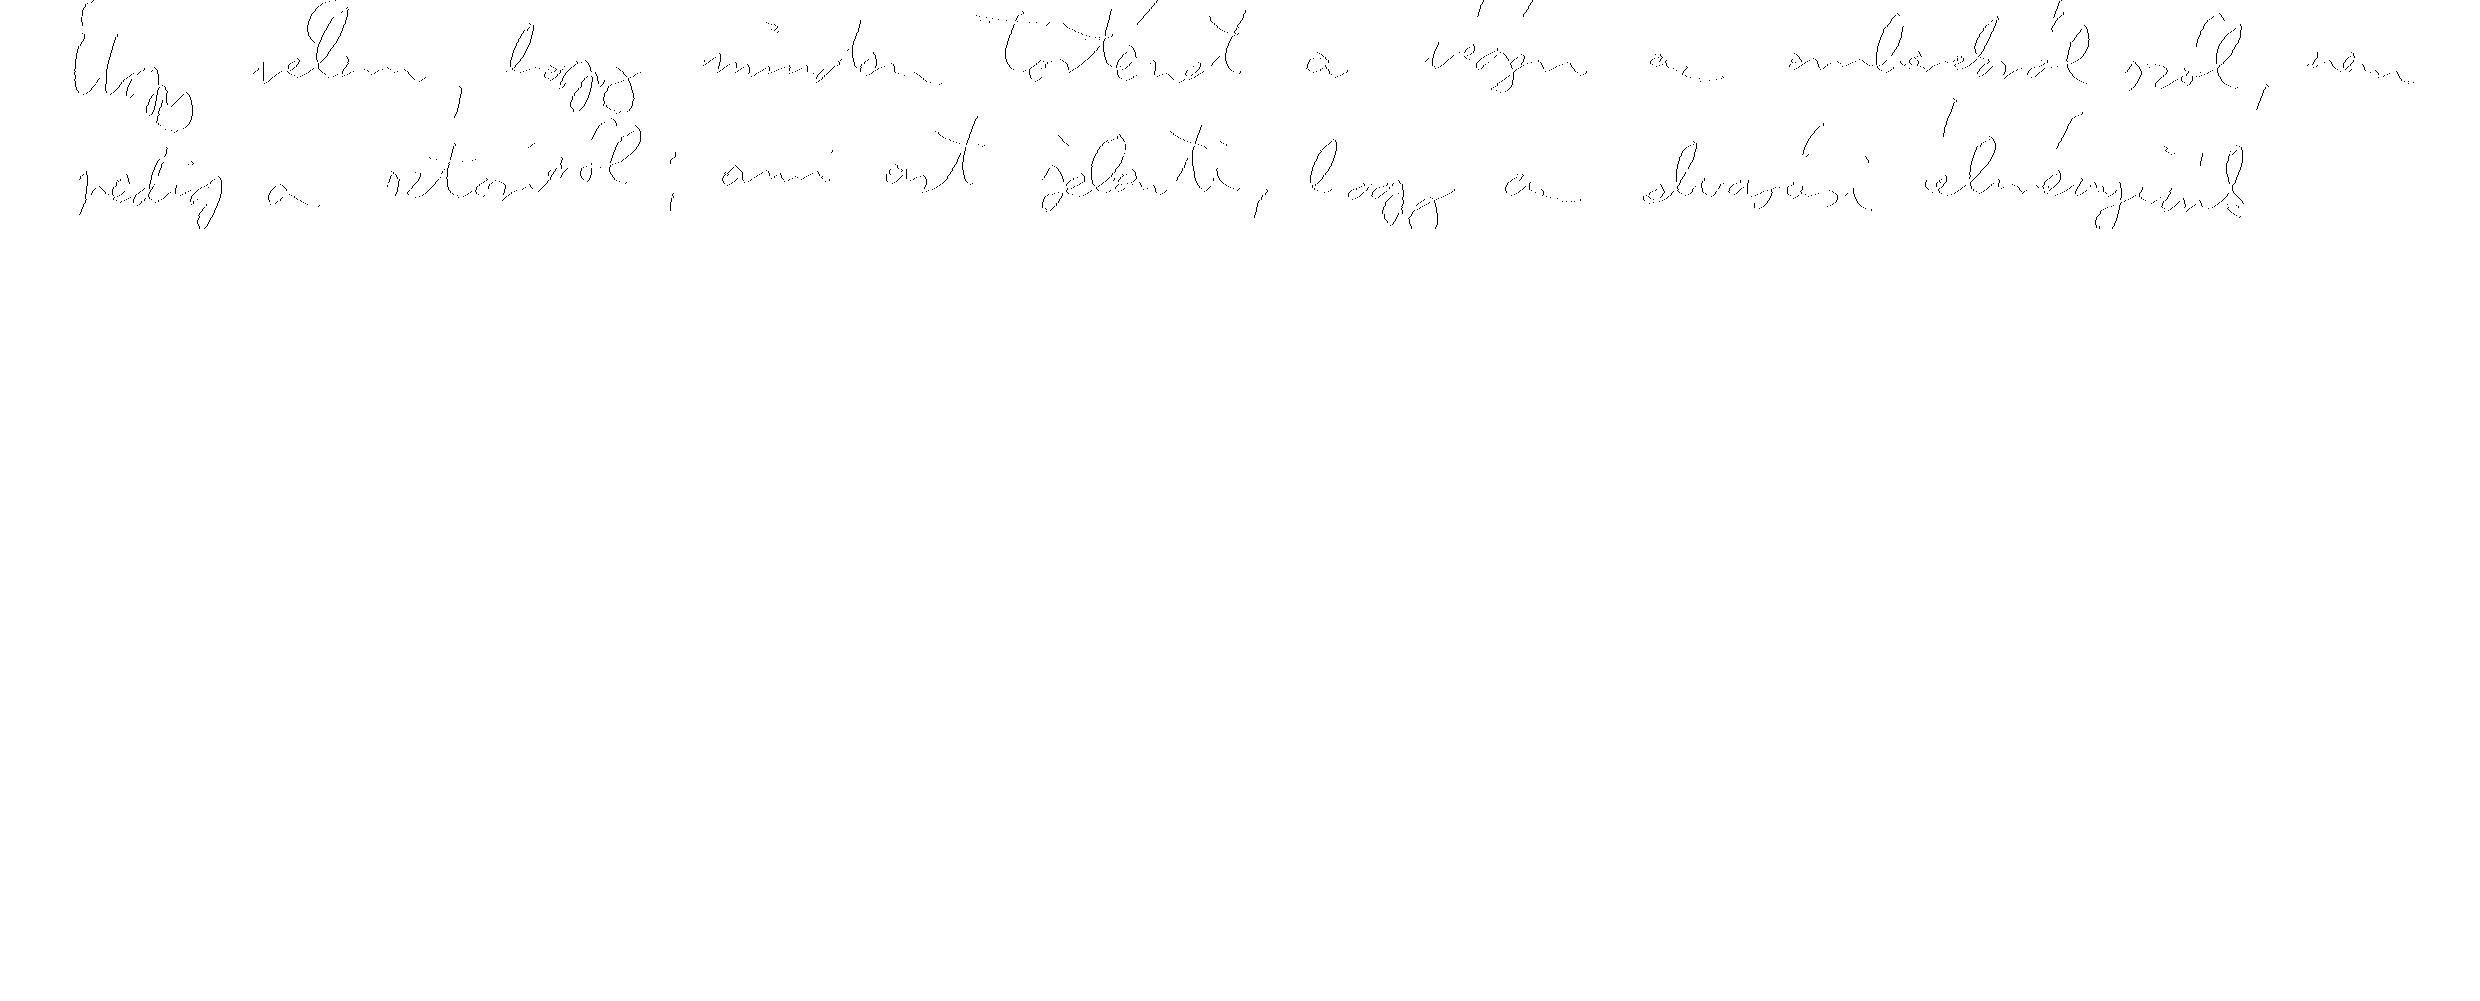 Úgy vélem, hogy minden történet a végén az emberekről szól, nem
pedig a sztoriról; ami azt jelenti, hogy az olvasási élményünk